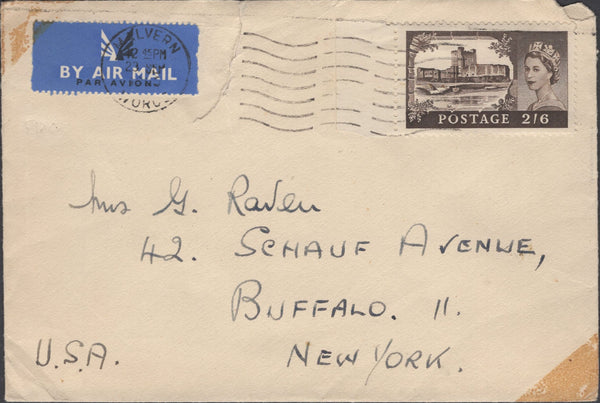 MALVERN
BY AIR MAIL
PAR AVION
POSTAGE 2/6
Mrs G. Raven
42. SCHAUF AVENUE,
BUFFALO. 11.
U.S.A. NEW YORK.